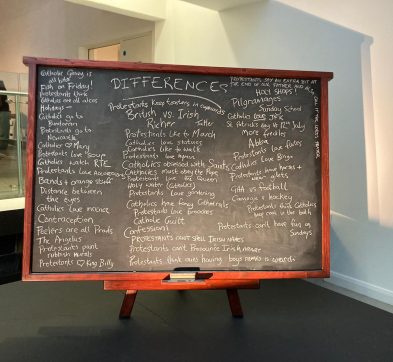 DIFFERENCES
Catholic Gravy is
all Bisto
Fish on Friday!
Protestants think
Catholics are all alcos
Holidays -
Catholics go to
Bundoran
Protestants go to
Newcastle
Catholics ♡ Mary
Protestants love Soup
Catholics watch RTE
Protestants Love Accordions
Bands & orange stuff
Distance between
the eyes
Catholics love incense
Contraception
Peelers are all Prods
The Angelus
Protestants paint
rubbish murals
Protestants ♡ King Billy
Protestants keep toasters in cupboards
British vs. Irish
Richer
Taller
Protestants like to March
Catholics love statues
Catholics like to walk
Protestants love
Catholics obsessed with Saints
Catholics must obey the Pope
Protestants love the Queen
Holy water (Catholics)
Protestants love gardening
Catholics have fancy Cathedrals
Protestants love brooches
Catholic Guilt
Confession!
PROTESTANTS CAN'T SPELL IRISH NAMES
Protestants can't Pronounce Irish names
Protestants think
having
names is weird
PROTESTANTS SAY AN EXTRA BIT AT
THE END OF OUR FATHER AND ALSO
CALL IT THE LORDS PRAYER
HOLY SHOPS!
Pilgrimages
Sunday School
Catholics love
St Patricks day vs 12th July
more freckles
Abba
Protestants love flutes
Catholics Love Bingo
Protestants love
+
GAA vs football
Camogie v hockey
Protestants think Catholics
keep coal in the bath
Protestants can't have fun on
Sundays